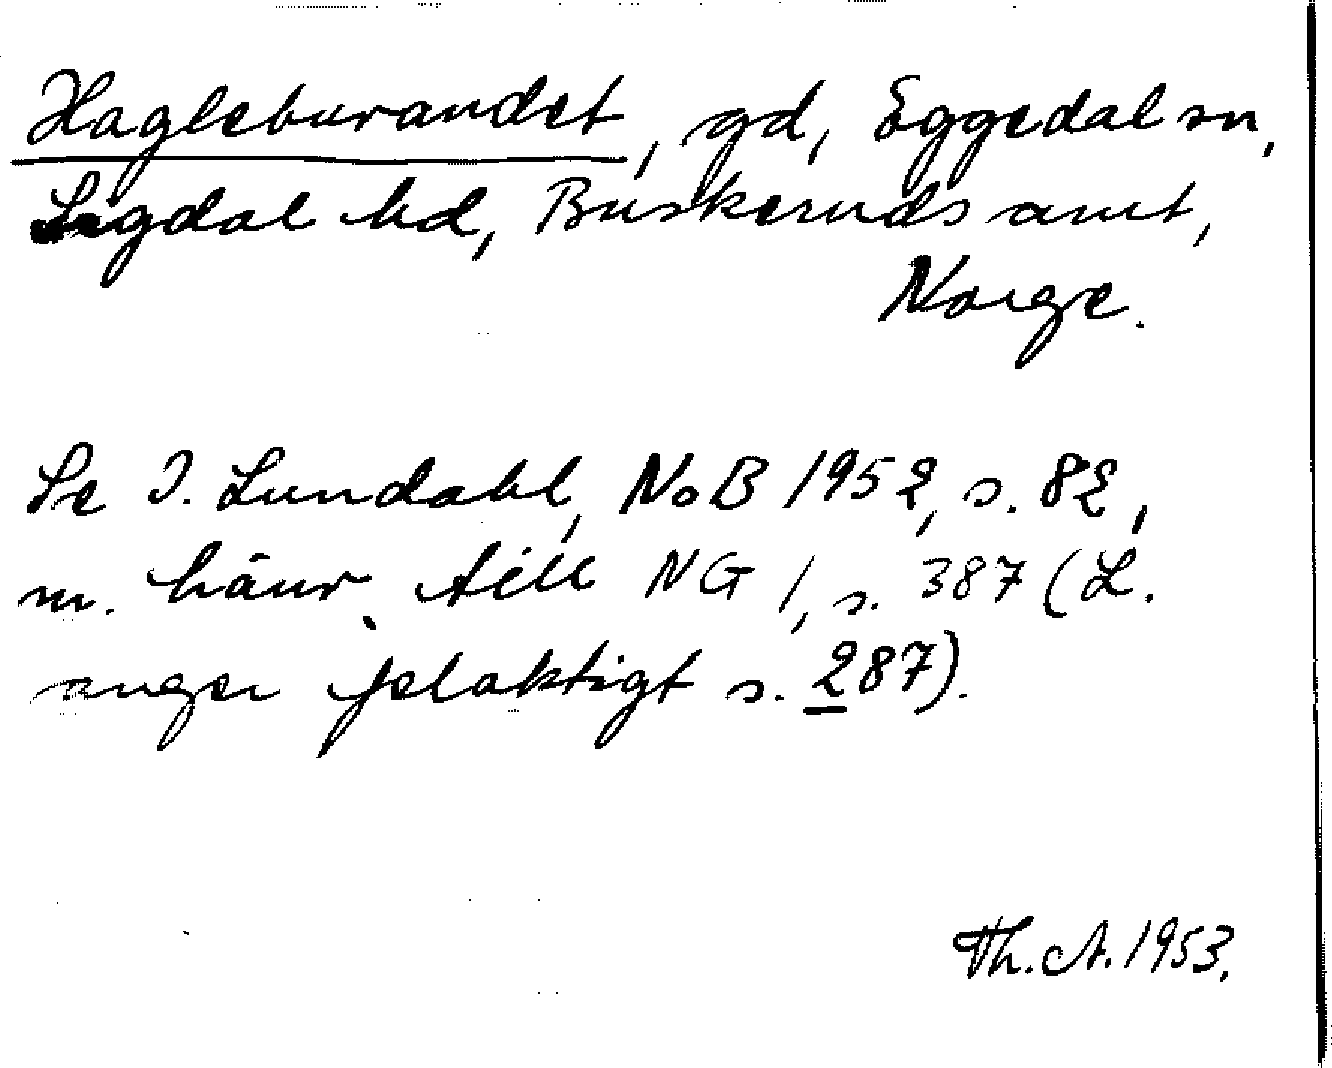 Hagleburandet, gd, Eggedal sn,
Sigdal hd, Buskeruds amt,
Norge.
Se I. Lundahl, NoB 1952, s. 82,
m. hänv. till NG 1, s. 387 (L.
anger felaktigt s. 287).
Th. A. 1953.